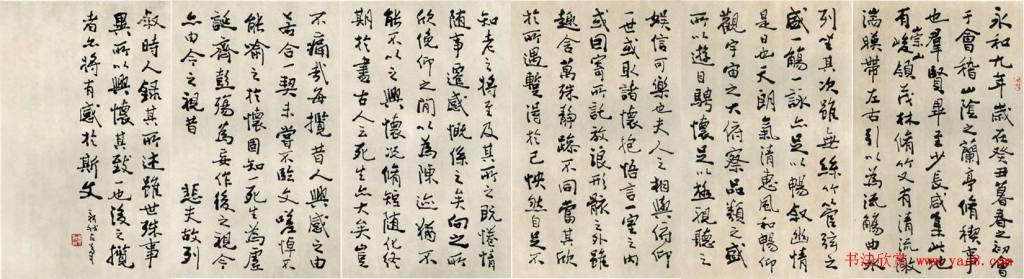 永和九年歲在癸丑暮春之初會
于會稽山陰之蘭亭脩稧事
也羣賢畢至少長咸集此地
有崇山峻領茂林脩竹又有清流激
湍暎帶左右引以為流觴曲水
列坐其次雖無絲竹管弦之
盛一觴一詠亦足以暢敘幽情
是日也天朗氣清惠風和暢仰
觀宇宙之大俯察品類之盛
所以遊目騁懷足以極視聽之
娛信可樂也夫人之相與俯仰
一世或取諸懷抱悟言一室之內
或因寄所託放浪形骸之外雖
趣舍萬殊靜躁不同當其欣
於所遇暫得於己怏然自足不
知老之將至及其所之既惓情
隨事遷感慨係之矣向之所
欣俛仰之間以為陳迹猶不
能不以之興懷況脩短隨化終
期於盡古人云死生亦大矣豈
不痛哉每攬昔人興感之由
若合一契未嘗不臨文嗟悼不
能喻之於懷固知一死生為虛
誕齊彭殤為妄作後之視今
亦由今之視昔 悲夫故列
敘時人錄其所述雖世殊事
異所以興懷其致一也後之攬
者亦將有感於斯文
书法欣赏 www.yac8.com